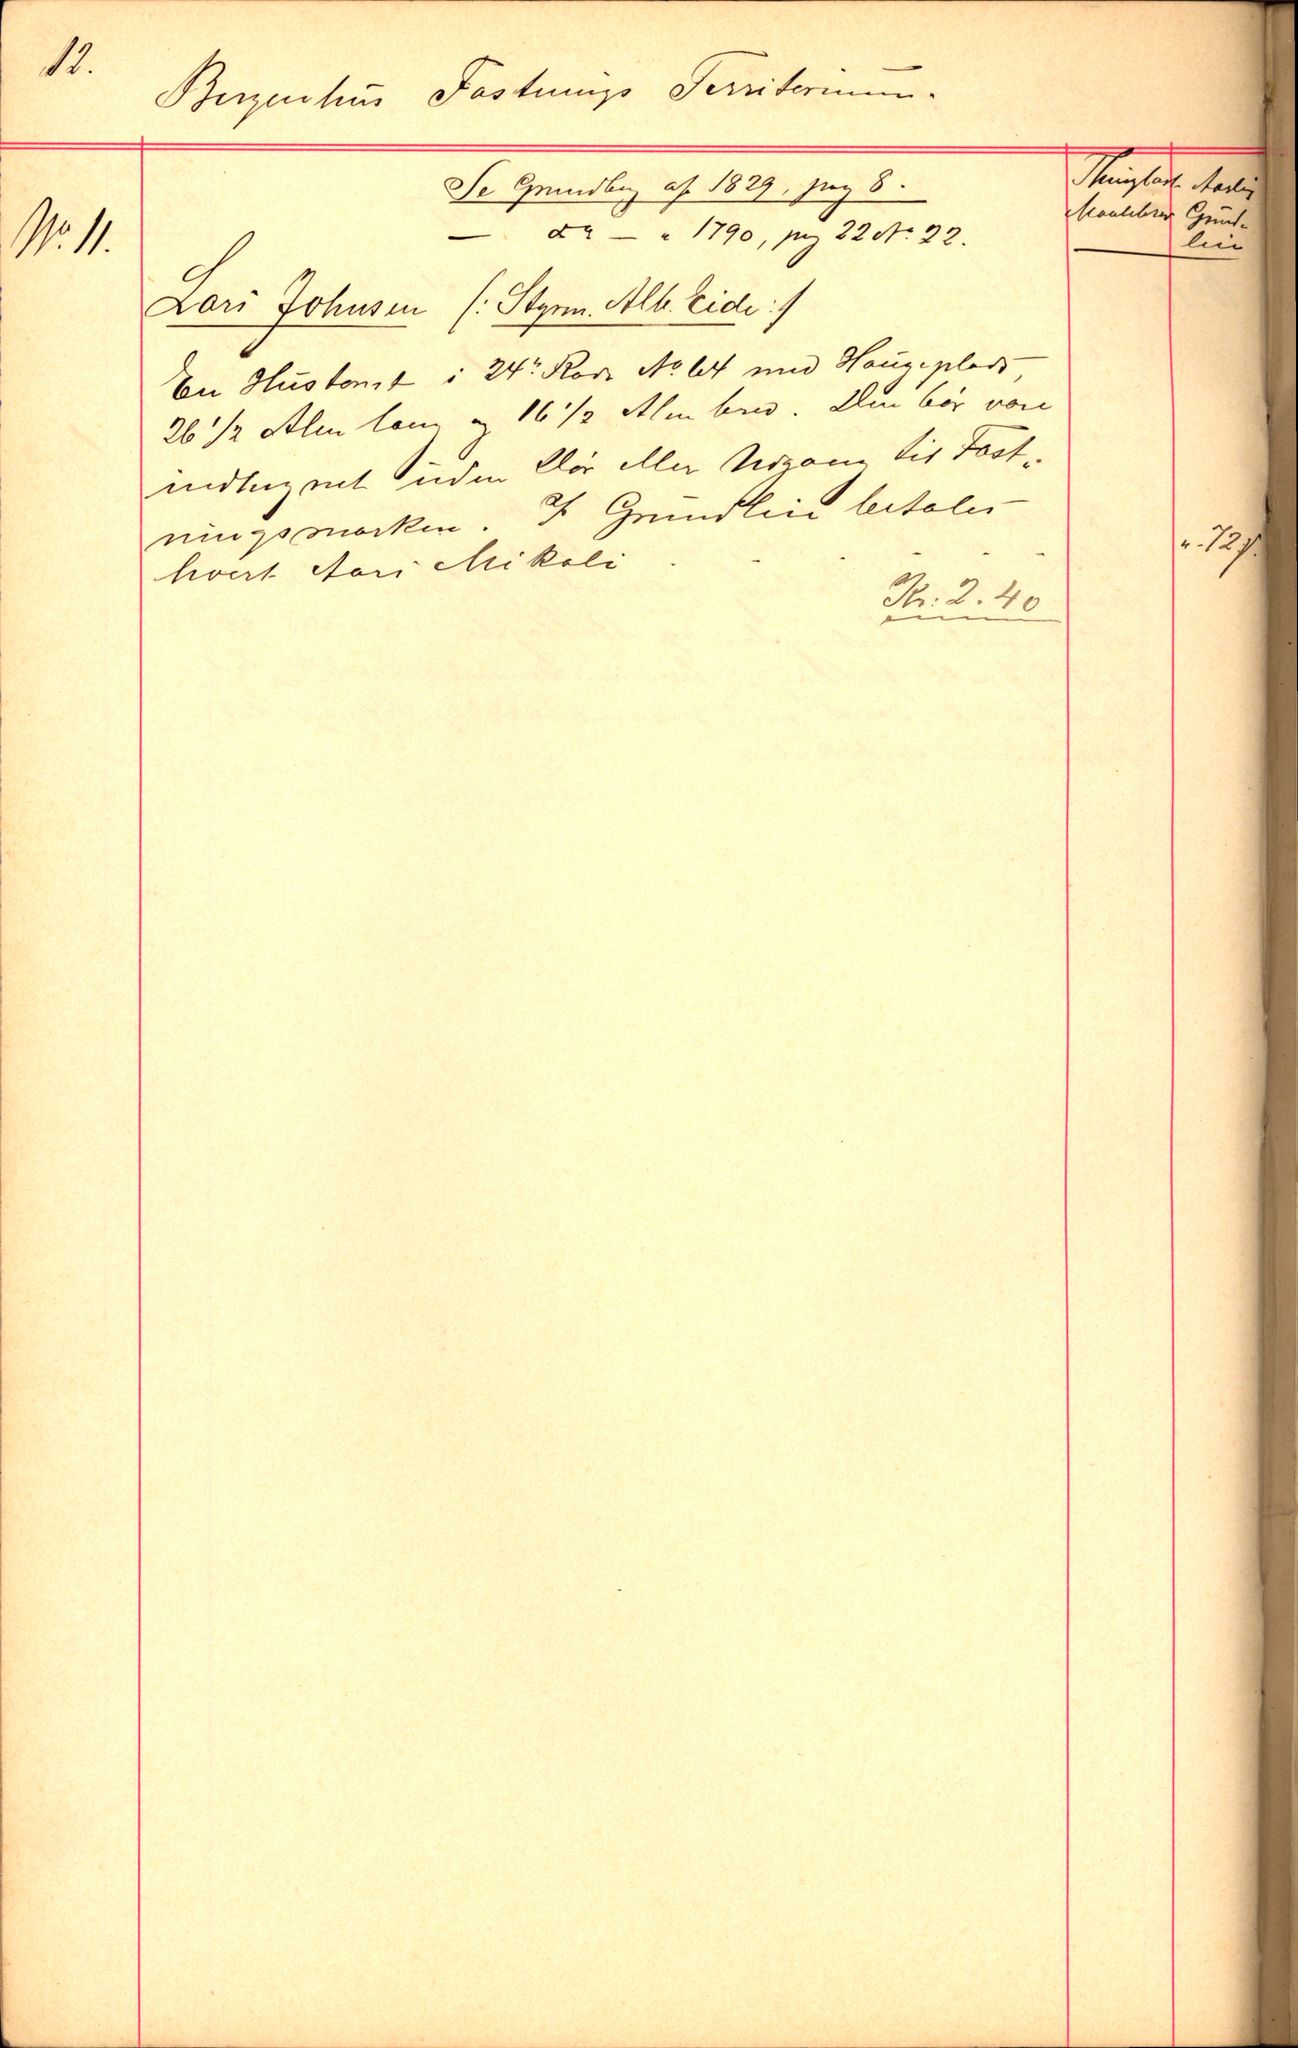 12.
Bergenhus Fæstnings Territorium.
Se Grundbog af 1829, pag 8.
— do — " 1790, pag 22 No 22.
Thinglæst Aarlig
Maalebrev Grund-
leie
No. 11.
Lars Johnsen (: Styrm. Alb. Eide :)
En Hustomt i 24de Rode No 64 med Haugeplads,
26 1/2 Alen lang og 16 1/2 Alen bred. Den bør være
indhegnet uden Dør eller Udgang til Fæst-
ningsmarken. I Grundleie betales
hvert Aars Mikeli
". 72
Kr. 2.40